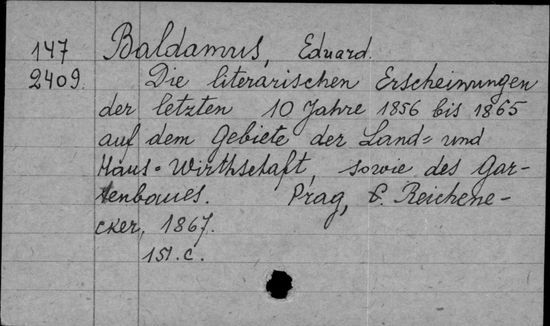 147 Baldamus, Eduard.
2409. Die literarischen Erscheinungen
der letzten 10 Jahre 1856 bis 1865
auf dem Gebiete der Land= und
Haus=Wirthschaft, sowie des Gar-
tenbaues. Prag, C. Reichene-
cker, 1867.
151. c.